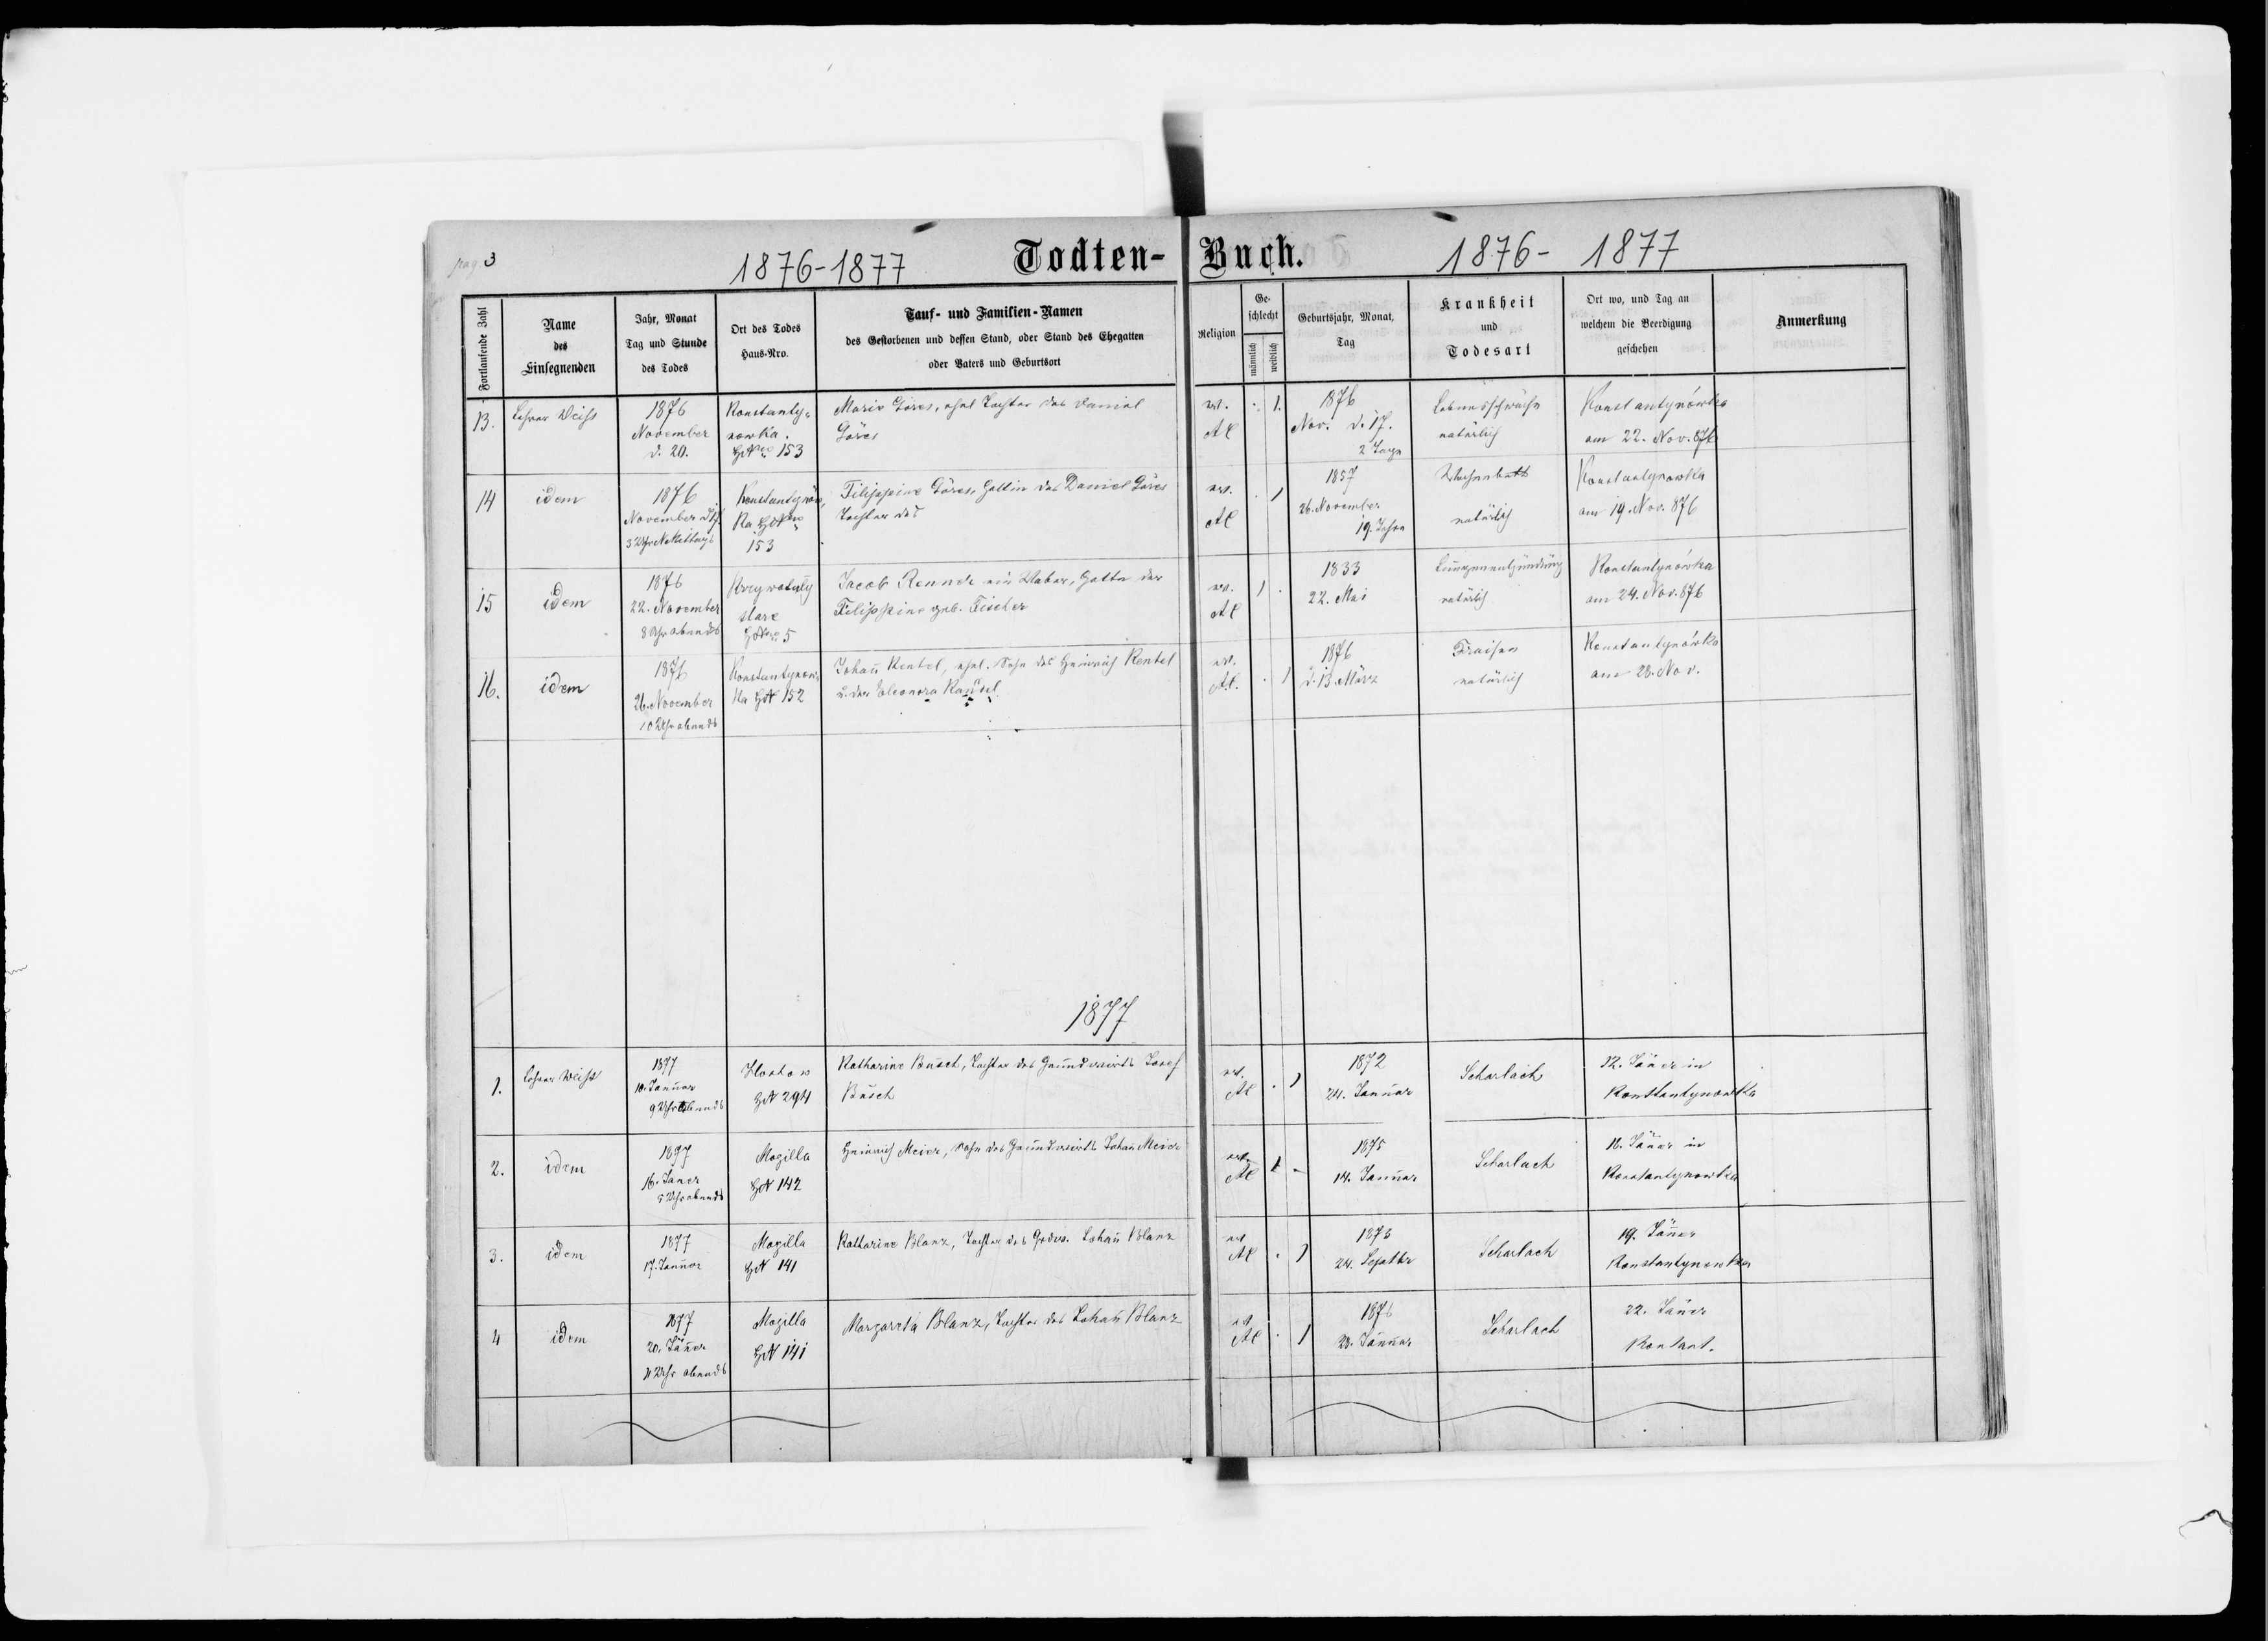 pag 3
1876-1877
Todten-Buch.
1876- 1877
Fortlaufende Zahl
Name
des
Einsegnenden
Jahr, Monat
Tag und Stunde
des Todes
Ort des Todes
Haus-Nro.
Tauf- und Familien-Namen
des Gestorbenen und dessen Stand, oder Stand des Ehegatten
oder Vaters und Geburtsort
Religion
Ge-
schlecht
männlich
weiblich
Geburtsjahr, Monat,
Tag
Krankheit
und
Todesart
Ort wo, und Tag an
welchem die Beerdigung
geschehen
Anmerkung
13.
Lehrer Weiss
1876
November
d. 20.
Konstanty-
nowka.
HNro 153
Maria Göres, ehel Tochter des Daniel
Göres
ev.
AC
1.
1876
Nov. d. 17.
2 Tage
Lebensschwäche
natürlich
Konstantynówka
am 22. Nov. 876
14
idem
1876
November d 17.
3 Uhr N Mittags
Konstantynów
ka HNro
153
Filippine Göres, Gattin des Daniel Göres
Tochter des
ev.
AC
1
1857
26. November
19. Jahre
Wochenbett
natürlich
Konstantynowka
am 19. Nov. 876
15
idem
1876
22. November
8 Uhr abends
stare
HNro 5
Jacob ein Weber, Gatte der
Filippine geb. Fischer
ev.
AC
1
1833
22. Mai
Lungenentzündung
natürlich
Konstantynówka
am 24. Nov. 876
16.
idem
1876
26. November
10 Uhr abends
Konstantynow-
ka HN 152
Johañ Rentel, ehel. Sohn des Heinrich Rentel
u. der Eleonora
ev.
AC.
1
1876
d. 13. März
Fraisen
natürlich
Konstantynówka
am 28. Nov.
1877
1.
Lehrer Weiss
1877
10. Januar
9 Uhr Abends
HN 294
Katharine Busch, Tochter des Grundwirths Josef
Busch
ev.
AC
1
1872
24. Januar
Scharlach
12. Jäner in
Konstantynowka
2.
idem
1877
16. Janer
5 Uhr abends
Mogilla
HN 142
Heinrich Meier, Sohn des Grundwirths Johañ Meier
ev.
AC
1 -
1875
14. Januar
Scharlach
18. Jäner in
Konstantynowka
3.
idem
1877
17. Januar
Mogilla
HN 141
Katharine Blanz, Tochter des Grdw. Johañ Blanz
ev
AC
1
1873
24. Septbr
Scharlach
19. Jäner
Konstantynowka
4
idem
1877
20. Jäner
Uhr abends
Mogilla
HN 141
Margareta Blanz, Tochter des Johañ Blanz
ev
AC
1
1876
Januar
Scharlach
22. Jäner
Konstant.